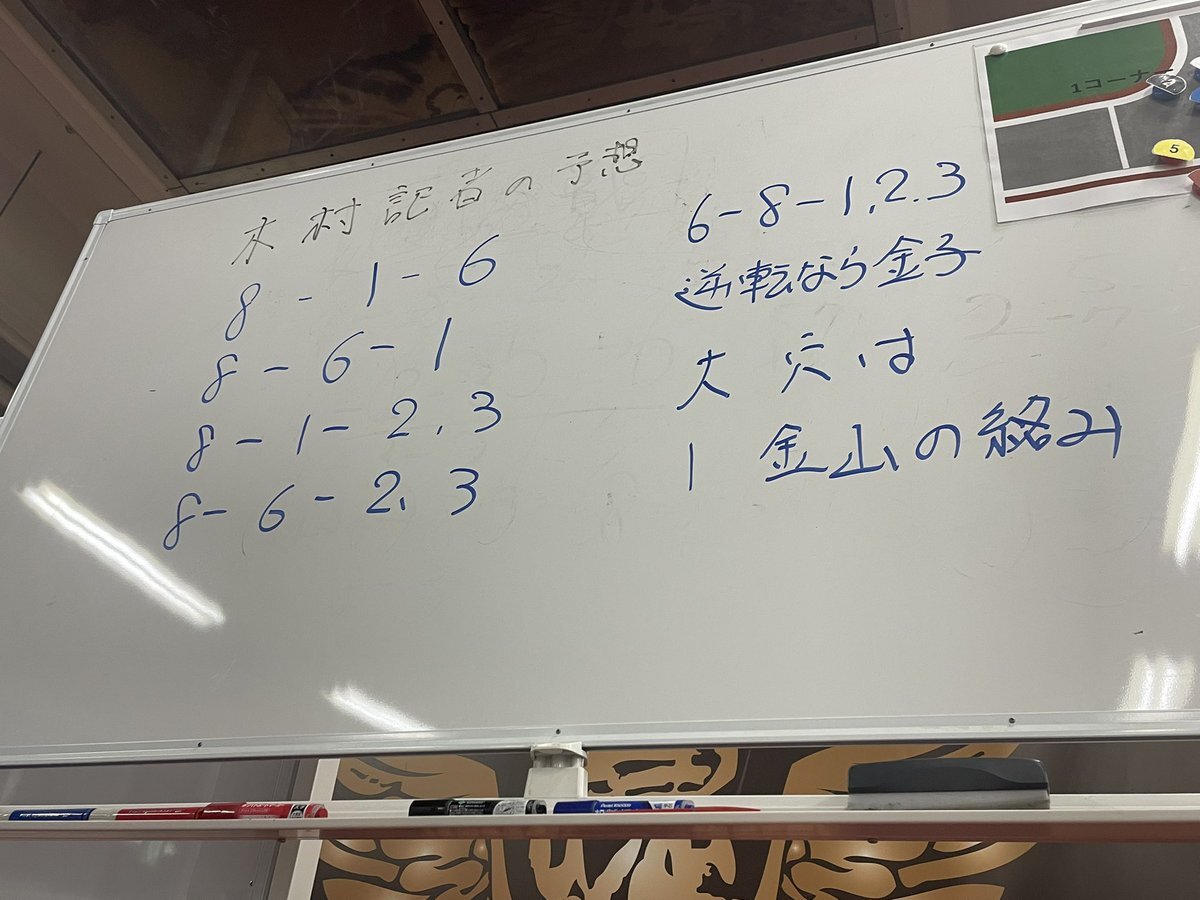 木村記者の予想
8-1-6
8-6-1
8-1-2,3
8-6-2,3
6-8-1,2,3
逆転なら金子
大穴は
1 金山の絡み
1コーナー
5